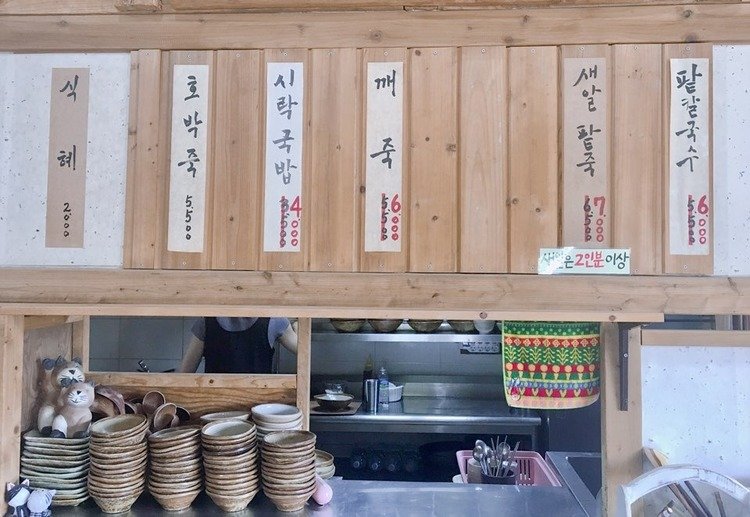 식혜 2000
호박죽 5500
시락국밥 4000
깨죽 6000
새알팥죽 7000
팥칼국수 6000
새알은 2인분 이상